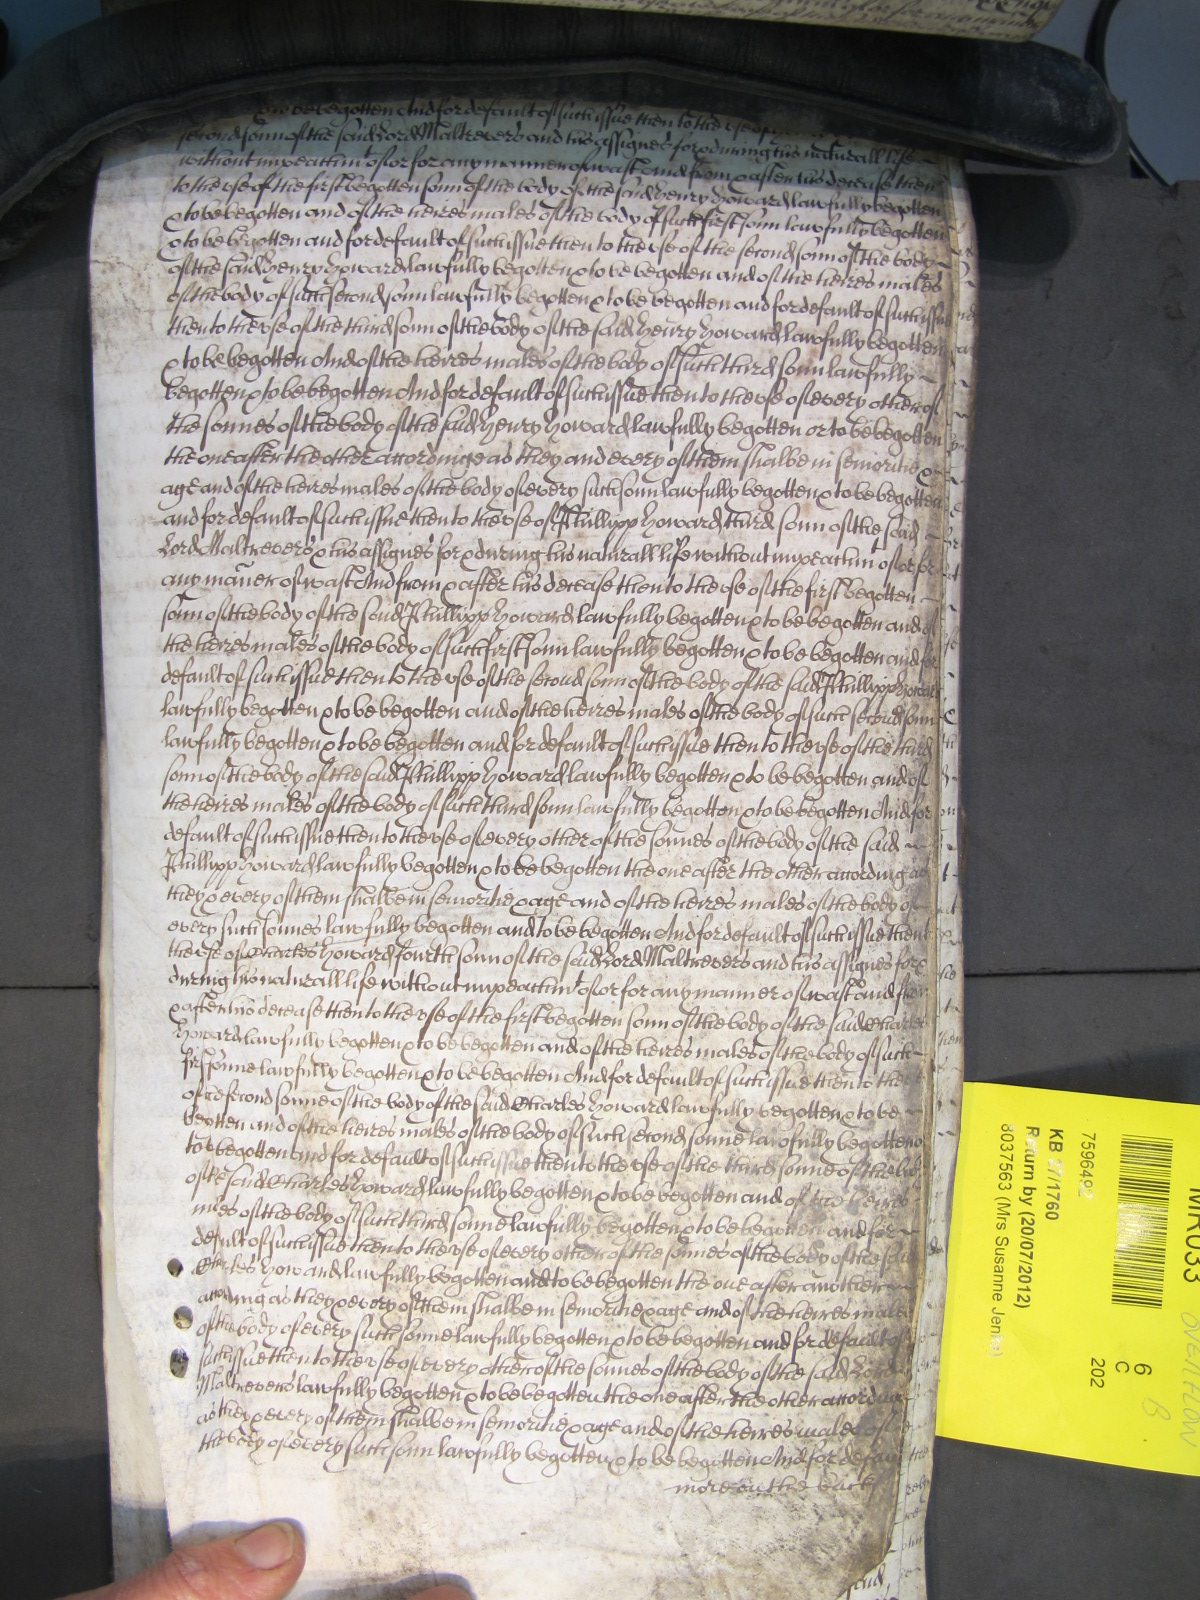 to be begotten And for default of such issue then to the use of
second sonn of the said Lord Maltrevers and his assignes for & during his naturall life
without impeachm^t of or for any manner of wast And from & after his decease then
to the use of the first begotten sonn of the body of the said Henry Howard lawfully begotten
& to be begotten and of the heires males of the body of such first sonn lawfully begotten
& to be begotten and for default of such issue then to the use of the second sonn of the body
of the said Henry Howard lawfully begotten & to be begotten and of the heires males
of the body of such second sonn lawfully begotten & to be begotten and for default of such issue
then to the use of the third sonn of the body of the said Henry Howard lawfully begotten
& to be begotten And of the heires males of the body of such third sonn lawfully
begotten & to be begotten And for default of such issue then to the use of every other of
the sonnes of the body of the said Henry Howard lawfully begotten or to be begotten
the one after the other accordinge as they and every of them shalbe in senioritie &
age and of the heires males of the body of every such sonn lawfully begotten & to be begotten
and for default of such issue then to the use of Phillipp Howard third sonn of the said
Lord Maltrevers & his assignes for & during his naturall life without impeachm^t of or for
any maner of wast And from & after his decease then to the use of the first begotten
sonn of the body of the said Phillipp Howard lawfully begotten & to be begotten and of
the heires males of the body of such first sonn lawfully begotten & to be begotten and for
default of such issue then to the use of the second sonn of the body of the said Phillipp Howard
lawfully begotten & to be begotten and of the heires males of the body of such second sonn
lawfully begotten & to be begotten and for default of such issue then to the use of the third
sonn of the body of the said Phillipp Howard lawfully begotten & to be begotten and of
the heires males of the body of such third sonn lawfully begotten & to be begotten And for
default of such issue then to the use of every other of the sonnes of the body of the said
Phillipp Howard lawfully begotten & to be begotten the one after the other according as
they & every of them shalbe in senioritie & age and of the heires males of the body of
every such sonnes lawfully begotten and to be begotten And for default of such issue then to
the use of Charles Howard fourth sonn of the said Lord Maltrevers and his assignes for &
during his naturall life without impeachm^t of or for any manner of wast and from
& after his decease then to the use of the first begotten sonn of the body of the said Charles
Howard lawfully begotten & to be begotten and of the heires males of the body of such
first sonne lawfully begotten & to be begotten And for default of such issue then to the use
of the second sonne of the body of the said Charles Howard lawfully begotten & to be
begotten and of the heires males of the body of such second sonne lawfully begotten &
to be begotten and for default of such issue then to the use of the third sonne of the body
of the said Charles Howard lawfully begotten & to be begotten and of the heires
males of the body of such third sonne lawfully begotten & to be begotten and for
default of such issue then to the use of every other of the sonnes of the body of the said
Charles Howard lawfully begotten and to be begotten the one after another
according as they & every of them shalbe in senioritie & age and of the heires males
of the body of every such sonne lawfully begotten & to be begotten and for default of
such issue then to the use of every other of the sonnes of the body of the said Lord
Maltrevers lawfully begotten & to be begotten the one after the other according
as they & every of them shalbe in senioritie & age and of the heires males of
the body of every such sonn lawfully begotten & to be begotten And for default
more on the back
said,
MR033
6
C
202
7596492
KB 27/1760
Return by (20/07/2012)
8037563 (Mrs Susanne Jen